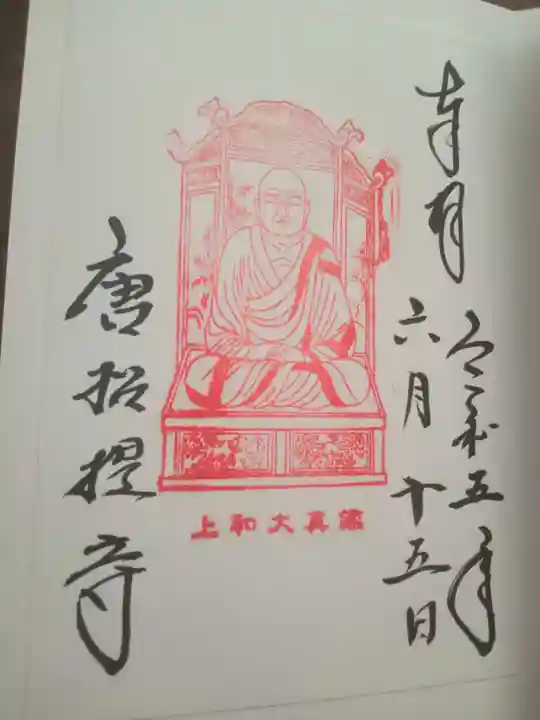 奉拝
令和五年
六月十五日
上和大真鑑
唐招提寺